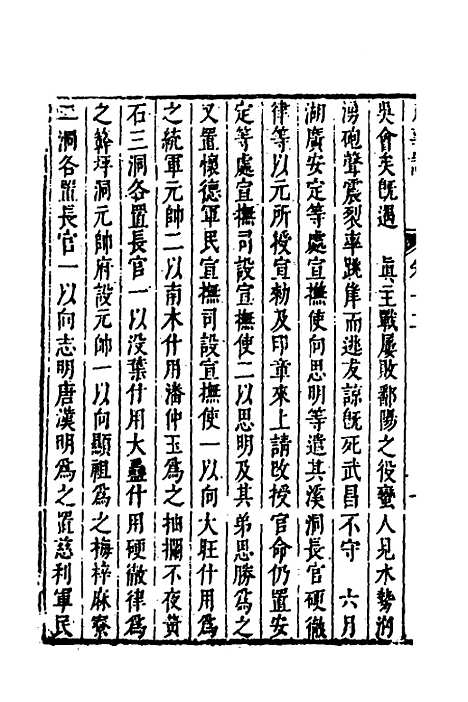 吳會矣旣遇　眞主戰屢敗鄱陽之役蠻人見水勢洶
湧砲聲震裂率跳岸而逃友諒旣死武昌不守　六月
湖廣安定等處宣撫使向思明等遣其溪洞長官硬徹
律等以元所授宣勅及印章來上請改授官命仍置安
定等處宣撫司設宣撫使二以思明及其弟思勝爲之
又置懷德軍民宣撫司設宣撫使一以向大旺什用爲
之統軍元帥二以南木什用潘仲玉爲之抽攔不夜黄
石三洞各置長官一以没葉什用大蟲什用硬徹律爲
之簳坪洞元帥府設元帥一以向顯祖爲之梅梓麻寮
二洞各置長官一以向志明唐漢明爲之置慈利軍民